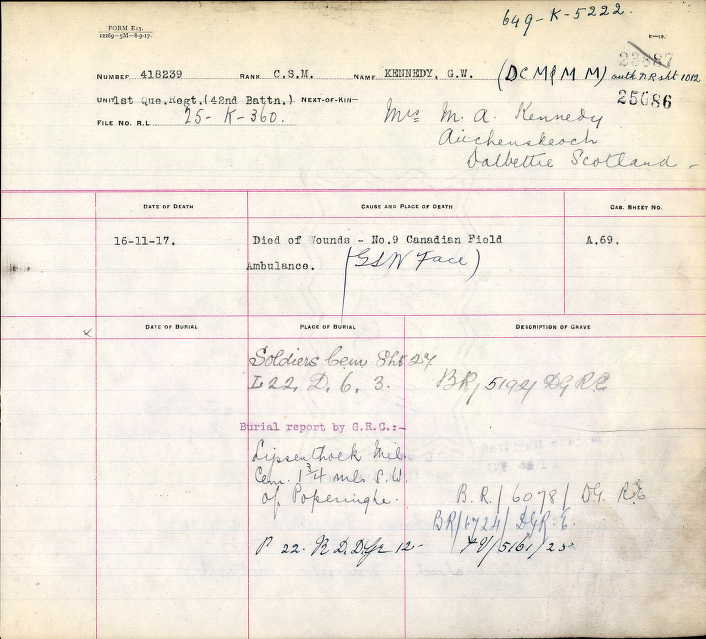 649-K-5222.
FORM R25.
12269-5M-8-9-17.
K-12.
23387
NUMBER 418239 RANK C.S.M. NAME KENNEDY, G.W. (D C M & M M) auth N.R. sht 1012
25686
UNIT 1st Que.Regt.(42nd Battn.) NEXT-OF-KIN—
FILE NO. R.L. 25-K-360.
Mrs M. A. Kennedy
Auchenskeoch
Dalbettie Scotland -
DATE OF DEATH CAUSE AND PLACE OF DEATH CAS. SHEET NO.
16-11-17. Died of Wounds - No.9 Canadian Field A.69.
Ambulance. (GSW Face)
DATE OF BURIAL PLACE OF BURIAL DESCRIPTION OF GRAVE
x
Soldiers Cem Sht 27
L 22. D. 6. 3. BR/5192/DGRE
Burial report by G.R.C.:-
Lijssenthoek Mil.
Cem. 1 3/4 mls S.W.
of Poperinghe.
B.R./6078/DG. R.E
BR/6724/DGR.E.
P 22. R.D. 12-